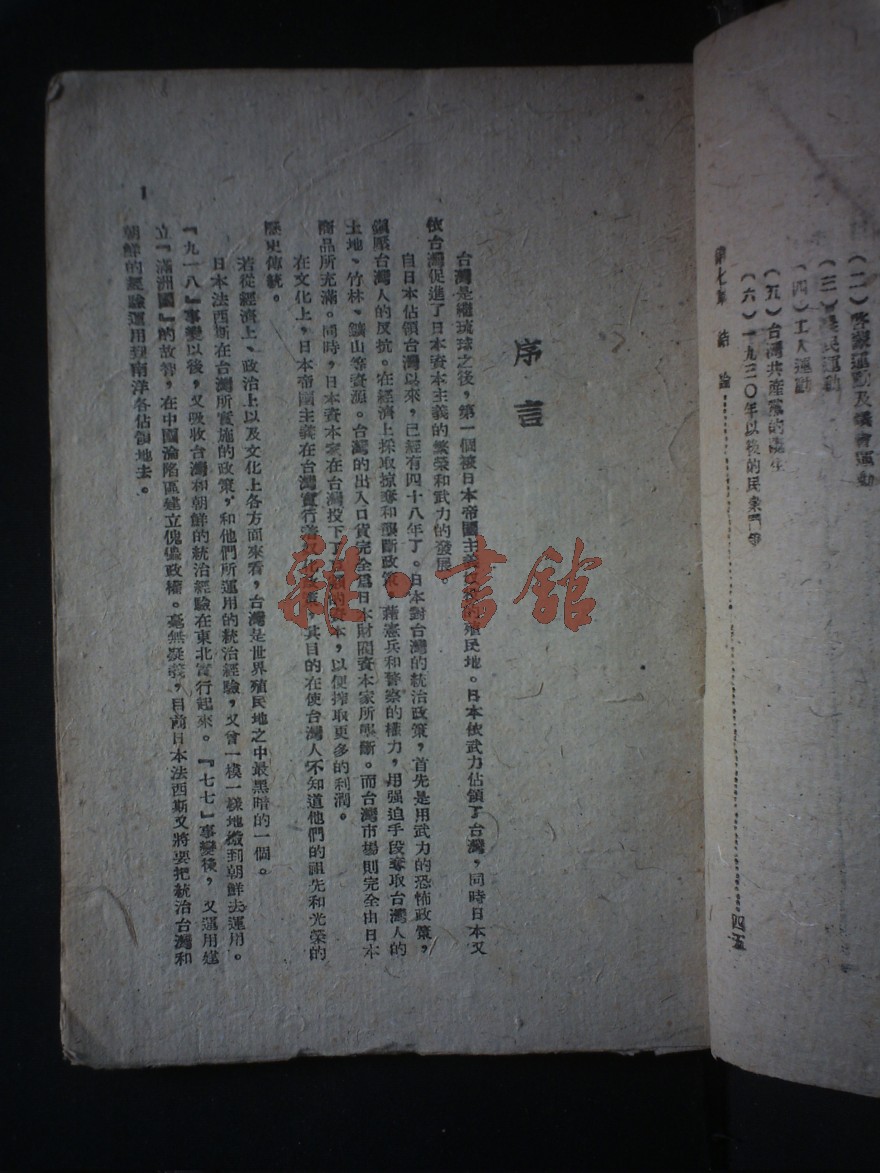 (二)啓蒙運動及議會運動
(三)農民運動
(四)工人運動
(五)台灣共產黨的產生
(六)一九三〇年以後的民衆鬥爭
第七章 結論…………四五
序言
台灣是繼琉球之後,第一個被日本帝國主義 的殖民地。日本依武力佔領了台灣,同時日本又
依台灣促進了日本資本主義的繁榮和武力的發展
自日本佔領台灣以來,已經有四十八年了。日本對台灣的統治政策,首先是用武力的恐怖政策,
鎭壓台灣人的反抗。在經濟上採取掠奪和壟斷政策 藉憲兵和警察的權力,用强迫手段奪取台灣人的
土地、竹林、鑛山等資源。台灣的出入口貨完全爲日本財閥資本家所壟斷。而台灣市場則完全由日本
商品所充滿。同時,日本資本家在台灣投下了 的資本,以便搾取更多的利潤。
在文化上,日本帝國主義在台灣實行 化政策,其目的在使台灣人不知道他們的祖先和光榮的
歷史傳統。
若從經濟上、政治上以及文化上各方面來看,台灣是世界殖民地之中最黑暗的一個。
日本法西斯在台灣所實施的政策,和他們所運用的統治經驗,又曾一模一樣地搬到朝鮮去運用。
『九一八』事變以後,又吸收台灣和朝鮮的統治經驗在東北實行起來。『七七』事變後,又運用建
立『滿洲國』的故智,在中國淪陷區建立傀儡政權。毫無疑義,目前日本法西斯又將要把統治台灣和
朝鮮的經驗運用到南洋各佔領地去。
1
雜·書館